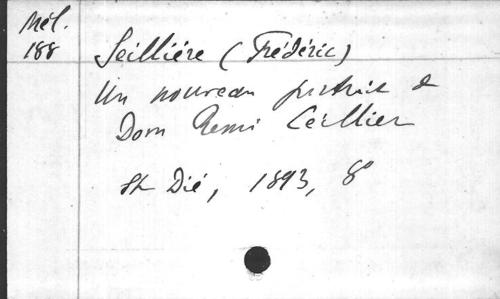 Mél.
188
Seillière (Frédéric)
Un nouveau portrait de
Dom Remi Ceillier
St Dié, 1893, 8°